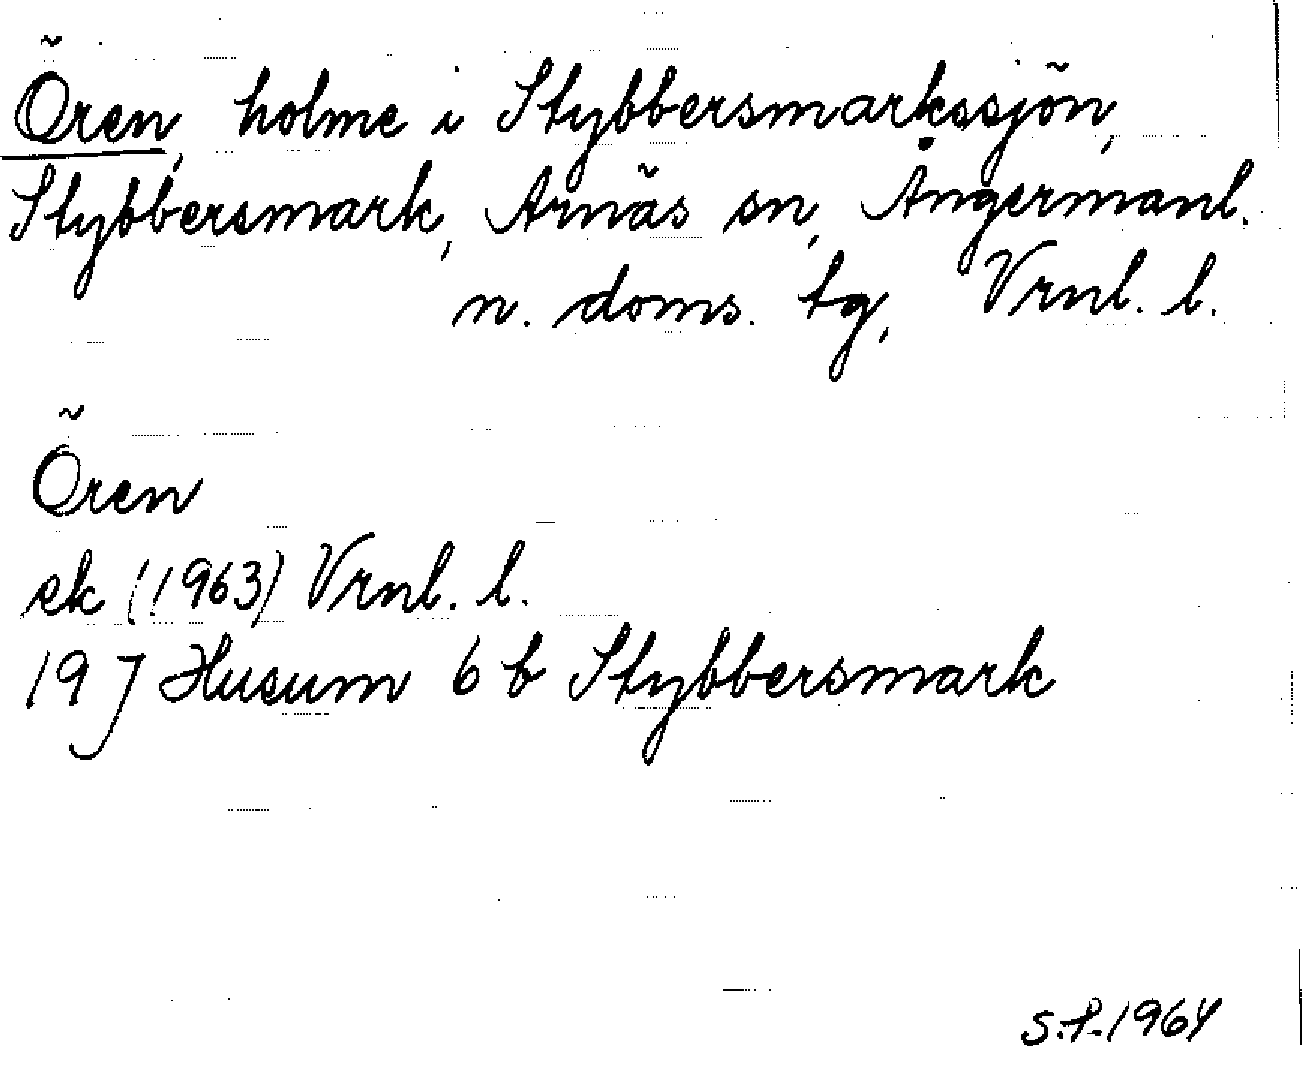 Ören, holme i Stybbersmarkssjön,
Stybbersmark, Arnäs sn, Ångermanl.
n. doms. tg, Vrnl. l.
Ören
ek (1963) Vrnl. l.
19 J Husum 6 b Stybbersmark
S.P. 1964